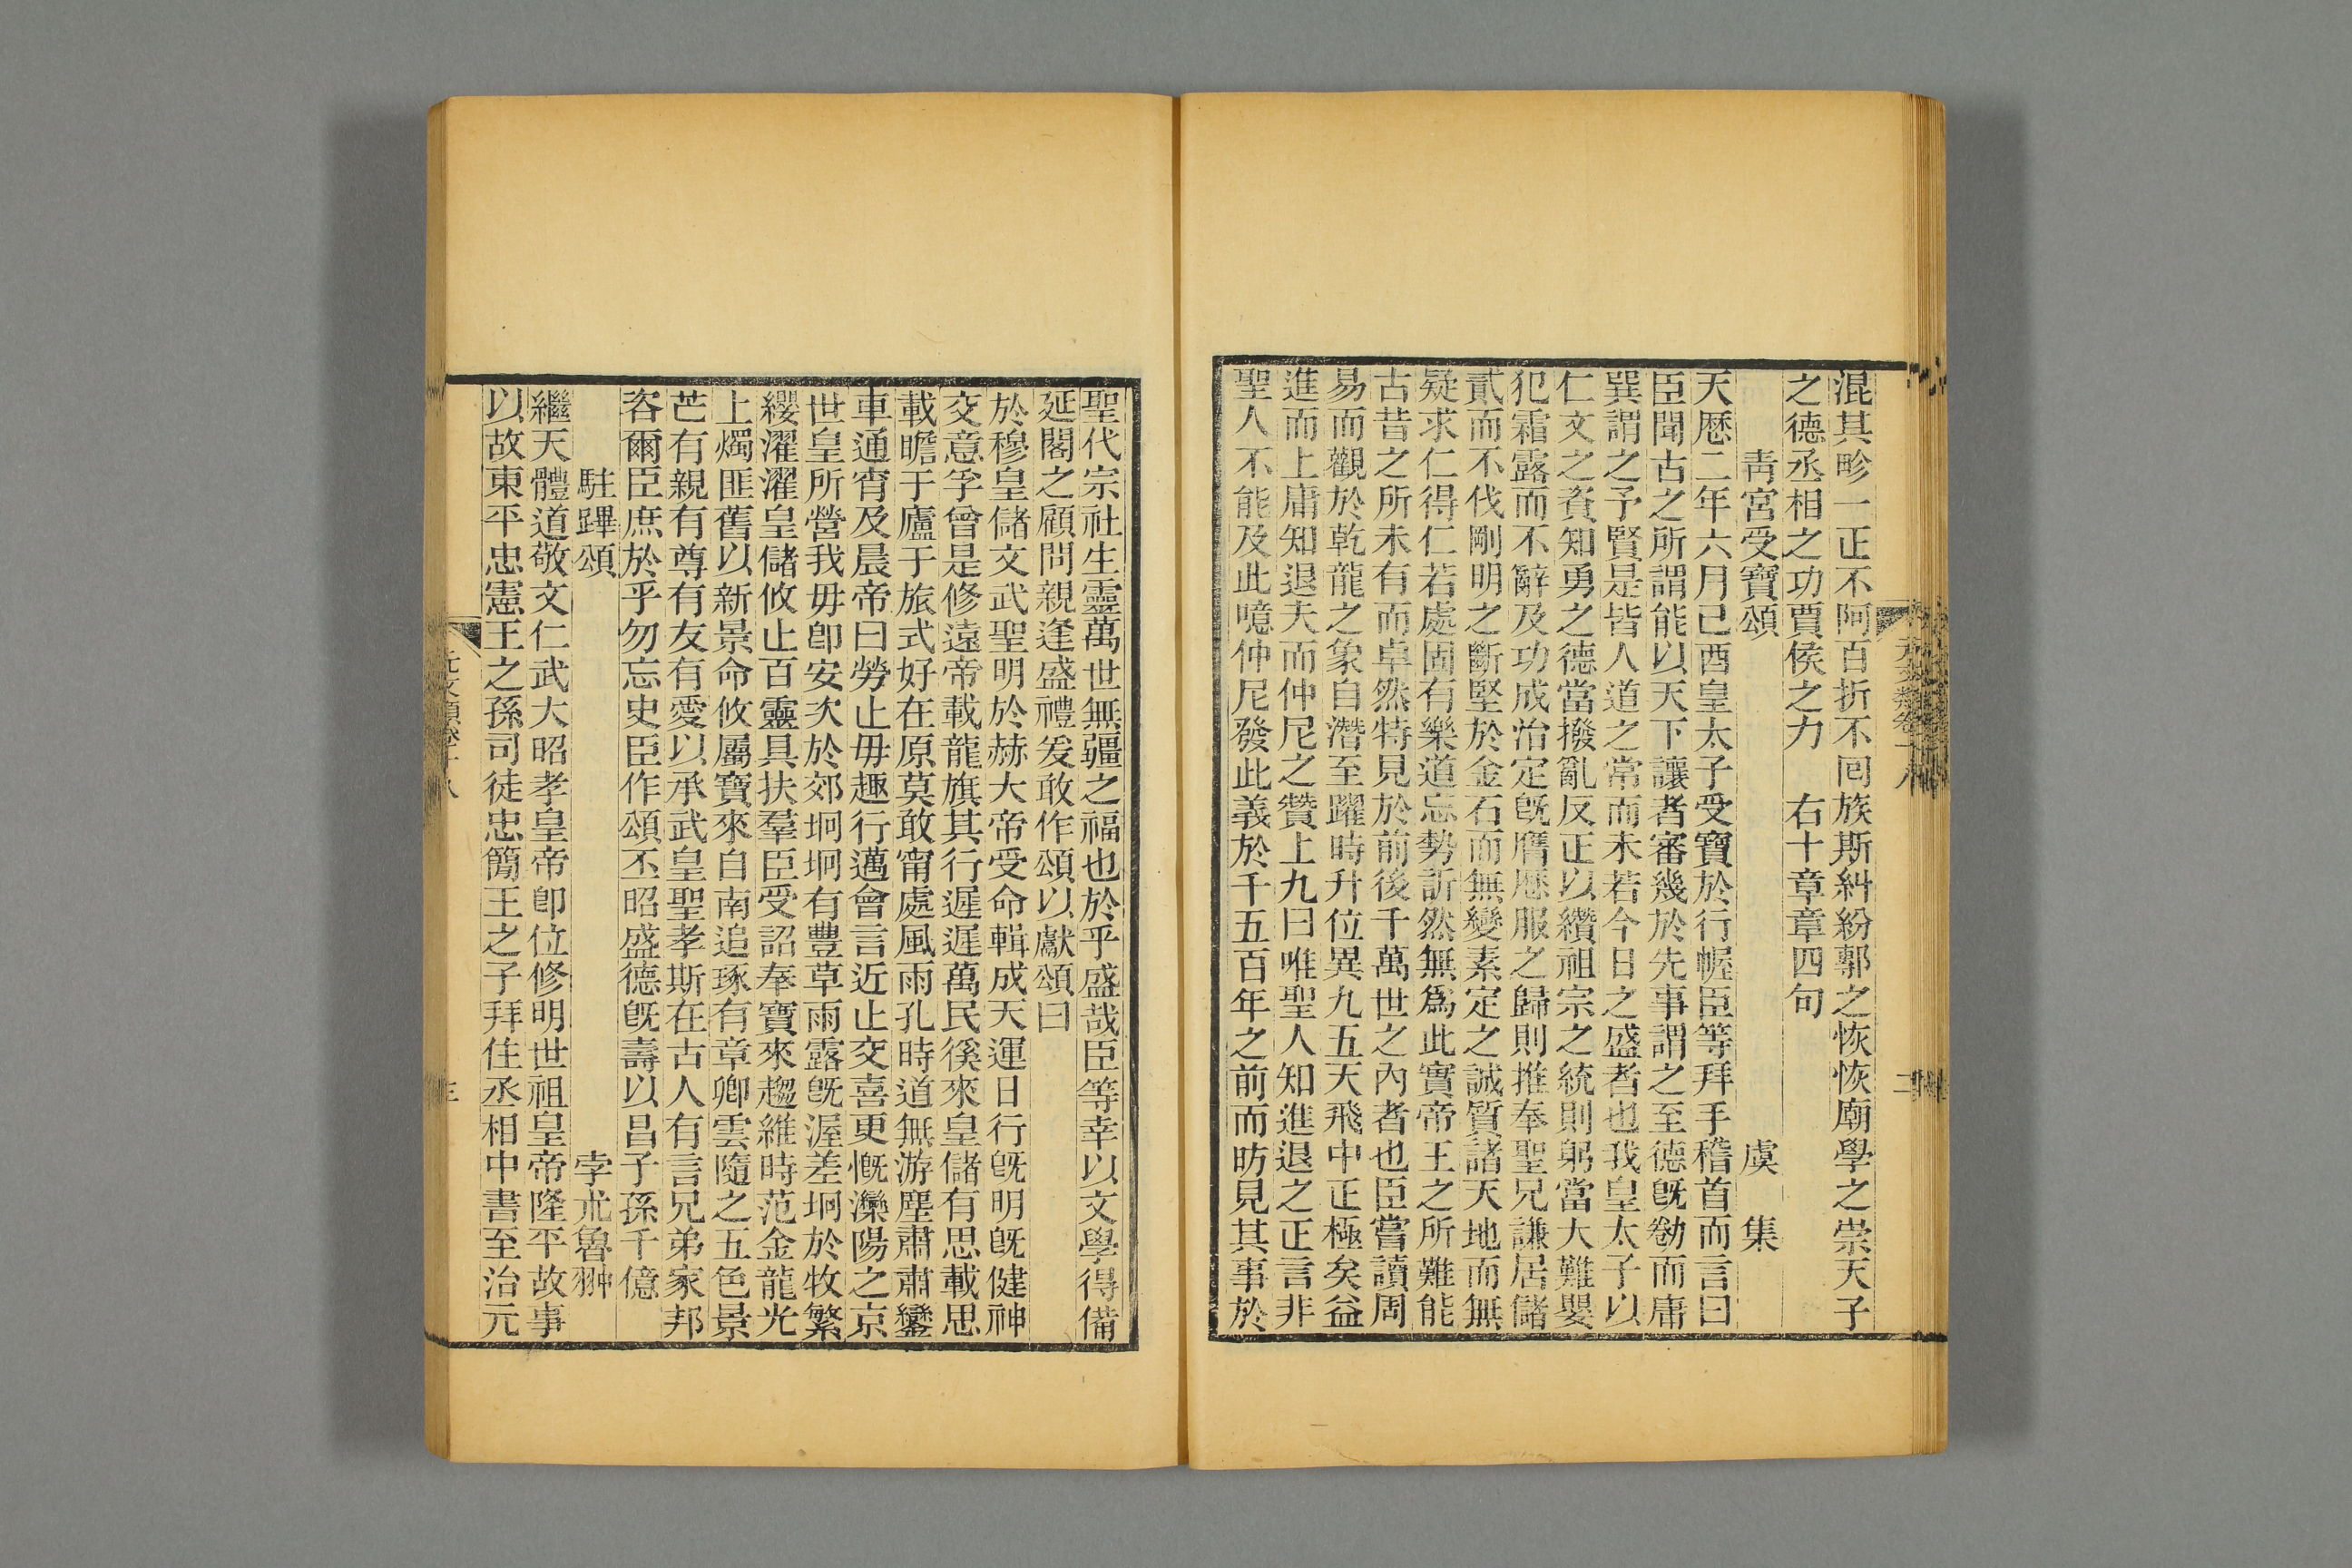 混其畛一正不阿百折不囘族斯糾紛鄣之恢恢廟學之崇天子
之德丞相之功賈侯之力　右十章章四句
靑宮受寶頌　虞　集
天歷二年六月己酉皇太子受寶於行幄臣等拜手稽首而言曰
臣聞古之所謂能以天下讓者審幾於先事謂之至德旣勌而庸
巽謂之予賢是皆人道之常而未若今日之盛者也我皇太子以
仁文之資知勇之德當撥亂反正以纘祖宗之統則躬當大難嬰
犯霜露而不辭及功成治定旣膺歷服之歸則推奉聖兄謙居儲
貳而不伐剛明之斷堅於金石而無變素定之誠質諸天地而無
疑求仁得仁若處固有樂道忘勢訢然無爲此實帝王之所難能
古昔之所未有而卓然特見於前後千萬世之內者也臣嘗讀周
易而觀於乾龍之象自潛至躍時升位異九五天飛中正極矣益
進而上庸知退夫而仲尼之贊上九曰唯聖人知進退之正言非
聖人不能及此噫仲尼發此義於千五百年之前而昉見其事於
聖代宗社生靈萬世無疆之福也於乎盛哉臣等幸以文學得備
延閣之顧問親逢盛禮爰敢作頌以獻頌曰
於穆皇儲文武聖明於赫大帝受命輯成天運日行旣明旣健神
交意孚曾是修遠帝載龍旗其行遲遲萬民徯來皇儲有思載思
載瞻于廬于旅式好在原莫敢甯處風雨孔時道無游塵肅肅鑾
車通宵及晨帝曰勞止毋趣行邁會言近止交喜更慨灤陽之京
世皇所營我毋卽安次於郊坰坰有豐草雨露旣渥差坰於牧繁
纓濯濯皇儲攸止百靈具扶羣臣受詔奉寶來趨維時范金龍光
上燭匪舊以新景命攸屬寶來自南追琢有章卿雲隨之五色景
芒有親有尊有友有愛以承武皇聖孝斯在古人有言兄弟家邦
咨爾臣庶於乎勿忘史臣作頌丕昭盛德旣壽以昌子孫千億
駐蹕頌　孛朮魯翀
繼天體道敬文仁武大昭孝皇帝卽位修明世祖皇帝隆平故事
以故東平忠憲王之孫司徒忠簡王之子拜住丞相中書至治元
元文類卷十八
三
元文類卷十八
二